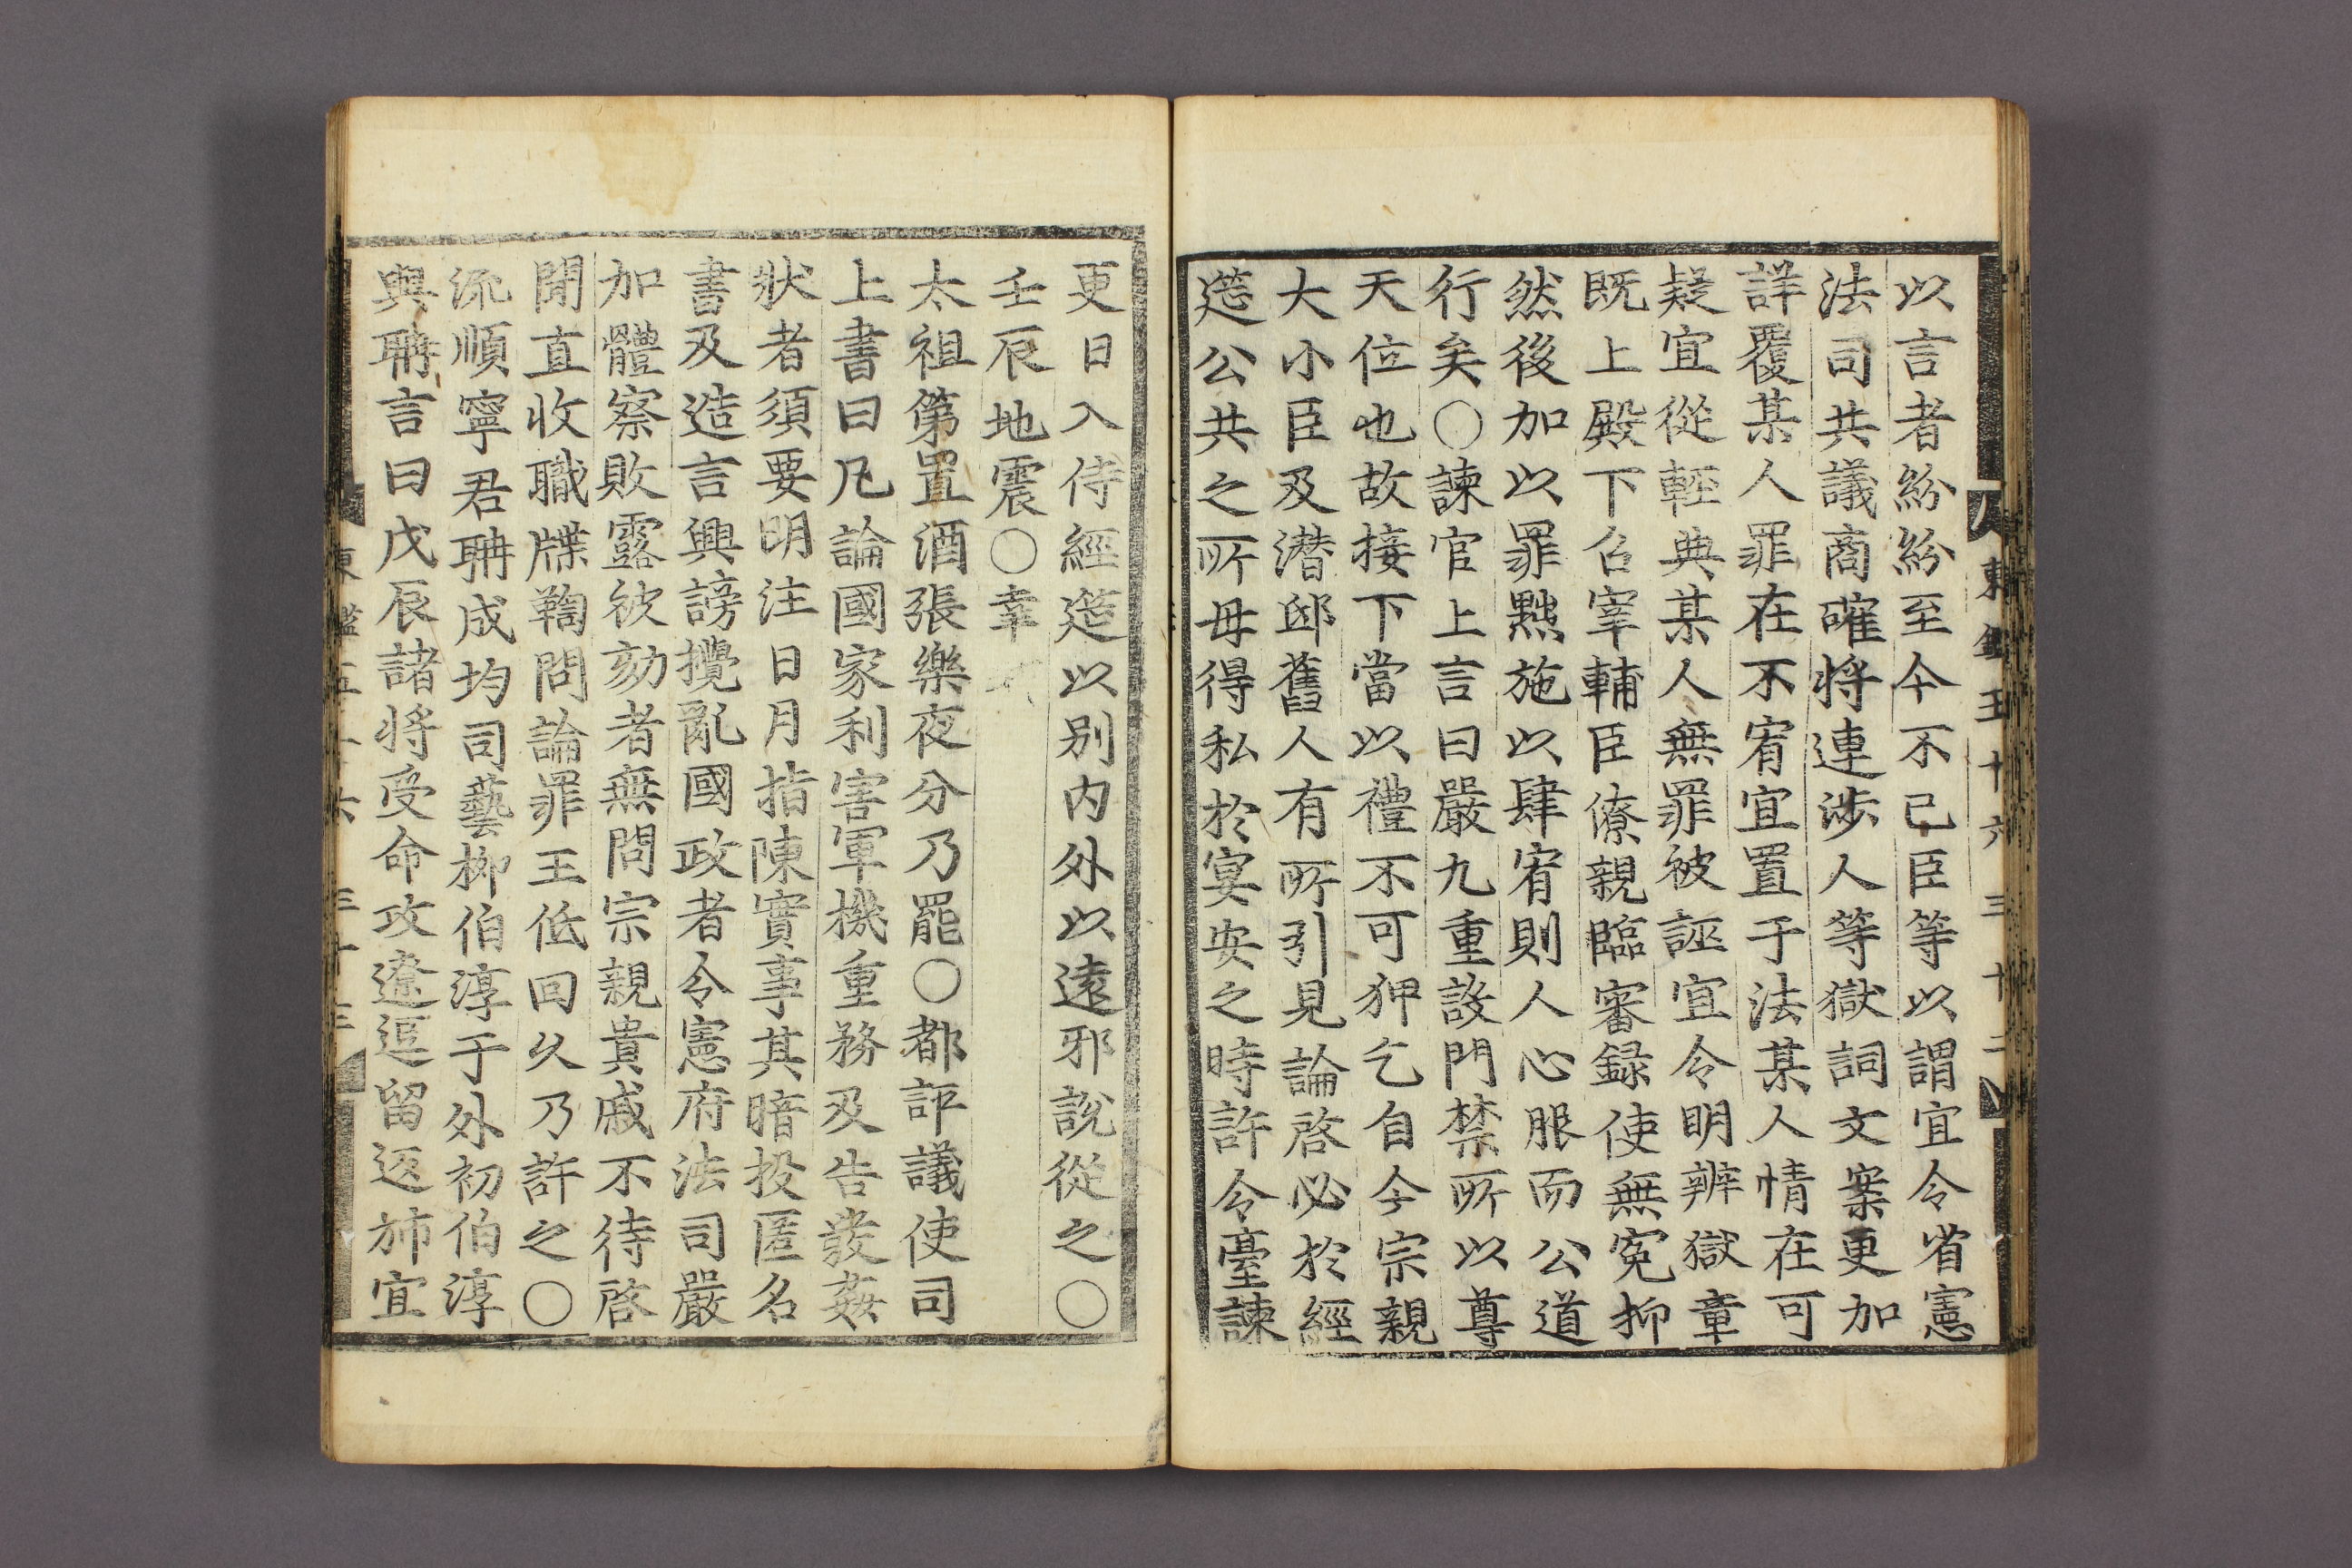 以言者紛紛至今不已臣等以謂宜令省憲
法司共議商確將連涉人等獄詞文案更加
詳覆某人罪在不宥宜置于法某人情在可
疑宜從輕典某人無罪被誣宜令明辨獄章
既上殿下召宰輔臣僚親臨審録使無冤抑
然後加以罪黜施以肆宥則人心服而公道
行矣○諫官上言曰嚴九重設門禁所以尊
天位也故接下當以禮不可狎乞自今宗親
大小臣及潛邸舊人有所引見論啓必於經
筵公共之所毋得私於宴安之時許令臺諫
更日入侍經筵以別內外以遠邪說從之○
壬辰地震○幸
太祖第置酒張樂夜分乃罷○都評議使司
上書曰凡論國家利害軍機重務及告發姦
狀者須要明注日月指陳實事其暗投匿名
書及造言興謗攪亂國政者令憲府法司嚴
加體察敗露被劾者無問宗親貴戚不待啓
聞直收職牒鞫問論罪王低回久乃許之○
流順寧君聃成均司藝柳伯淳于外初伯淳
與聃言曰戊辰諸將受命攻遼逗留返旆宜
東鑑五十六 三十二
東鑑五十六 三十三